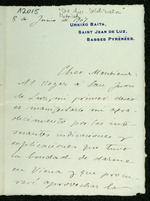 A2015
8 de Junio de 1907
URKIKO BAITA,
SAINT JEAN DE LUZ,
BASSES PYRÉNÉES.
Cher Monsieur:
Al llegar a San Juan
de Luz, mi primer deber
es manifestarle mi agra-
decimiento por las inte-
resantes indicaciones y
explicaciones que tuvo
la bondad de darme
en Viena y que procu-
raré aprovechar la